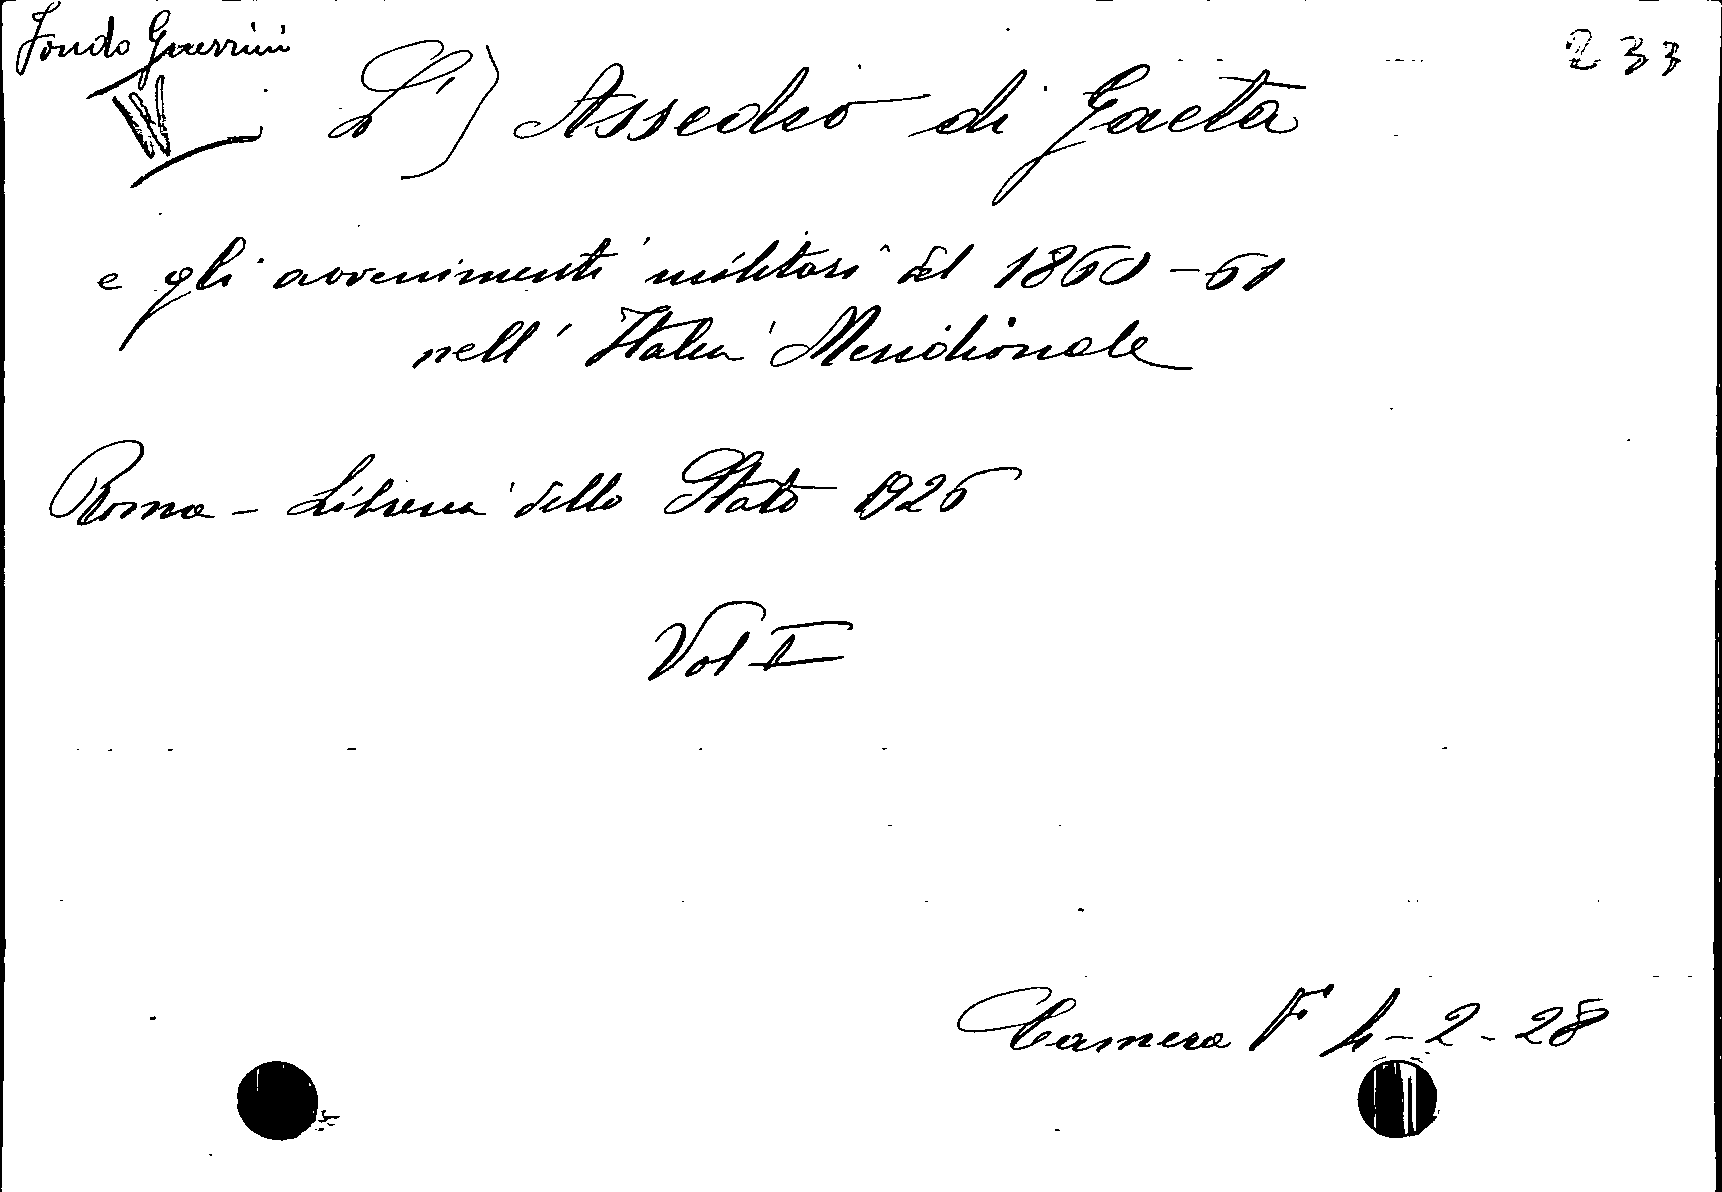 Fondo Guerrini
233
L') Assedio di Gaeta
e gli avvenimenti militari del 1860-61
nell' Italia Meridionale
Roma - Libreria dello Stato 1926
Vol I
Camera F 4-2-28